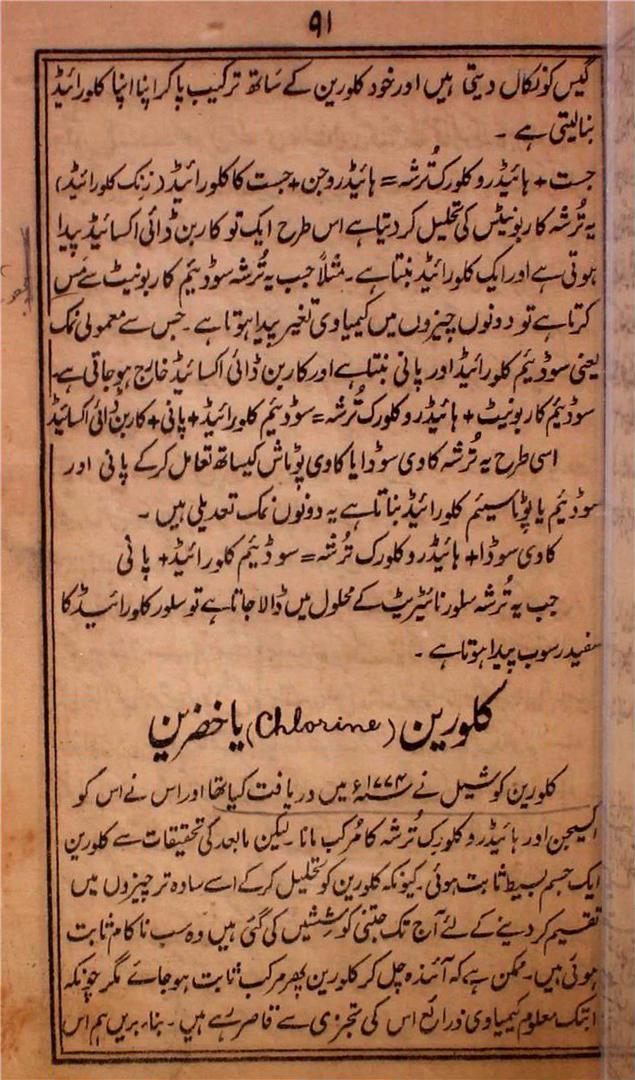 ۹۱
گیس کو نکال دیتی ہیں اور خود کلورین کے ساتھ ترکیب پا کر اپنا اپنا کلورائیڈ
بنا لیتی ہے ۔
جست + ہائیڈروکلورک تُرشہ = ہائیڈروجن + جست کا کلورائیڈ (زنک کلورائیڈ)
یہ تُرشہ کاربونیٹس کی تحلیل کر دیتا ہے اس طرح ایک تو کاربن ڈائی اکسائیڈ پیدا
ہوتی ہے اور ایک کلورائیڈ بنتا ہے ۔ مثلاً جب یہ تُرشہ سوڈیئم کاربونیٹ سے مَس
کرتا ہے تو دونوں چیزوں میں کیمیاوی تغیر پیدا ہوتا ہے ۔ جس سے معمولی نمک
یعنی سوڈیئم کلورائیڈ اور پانی بنتا ہے اور کاربن ڈائی اکسائیڈ خارج ہو جاتی ہے ۔
سوڈیئم کاربونیٹ + ہائیڈروکلورک تُرشہ = سوڈیئم کلورائیڈ + پانی + کاربن ڈائی اکسائیڈ
اسی طرح یہ تُرشہ کاوی سوڈا یا کاوی پوٹاش کیساتھ تعامل کرکے پانی اور
سوڈیئم یا پوٹاسیئم کلورائیڈ بناتا ہے یہ دونوں نمک تعدیلی ہیں ۔
کاوی سوڈا + ہائیڈروکلورک تُرشہ = سوڈیئم کلورائیڈ + پانی
جب یہ تُرشہ سلور نائیٹریٹ کے محلول میں ڈالا جاتا ہے تو سلور کلورائیڈ کا
سفید رسوب پیدا ہوتا ہے ۔
کلورین (Chlorine) یا خضرین
کلورین کو شیل نے ۱۷۷۴ء میں دریافت کیا تھا اور اس نے اس کو
اکسیجن اور ہائیڈروکلورک تُرشہ کا مُرکب مانا ۔ لیکن مابعد کی تحقیقات سے کلورین
ایک جسم بسیط ثابت ہوئی ۔ کیونکہ کلورین کو تحلیل کرکے اسے سادہ تر چیزوں میں
تقسیم کر دینے کے لئے آج تک جتنی کوششیں کی گئی ہیں وہ سب ناکام ثابت
ہوئی ہیں ۔ ممکن ہے کہ آئندہ چل کر کلورین پھر مرکب ثابت ہو جائے مگر چونکہ
ابتک معلوم کیمیاوی ذرائع اس کی تجزی سے قاصر رہے ہیں ۔ بناء بریں ہم اس